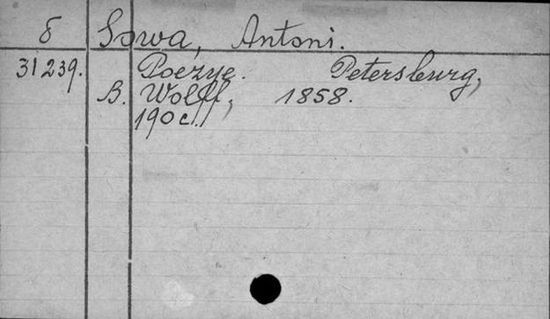 8 Sowa, Antoni.
31239. Poezye. Petersburg,
B. Wolff, 1858.
190 c.